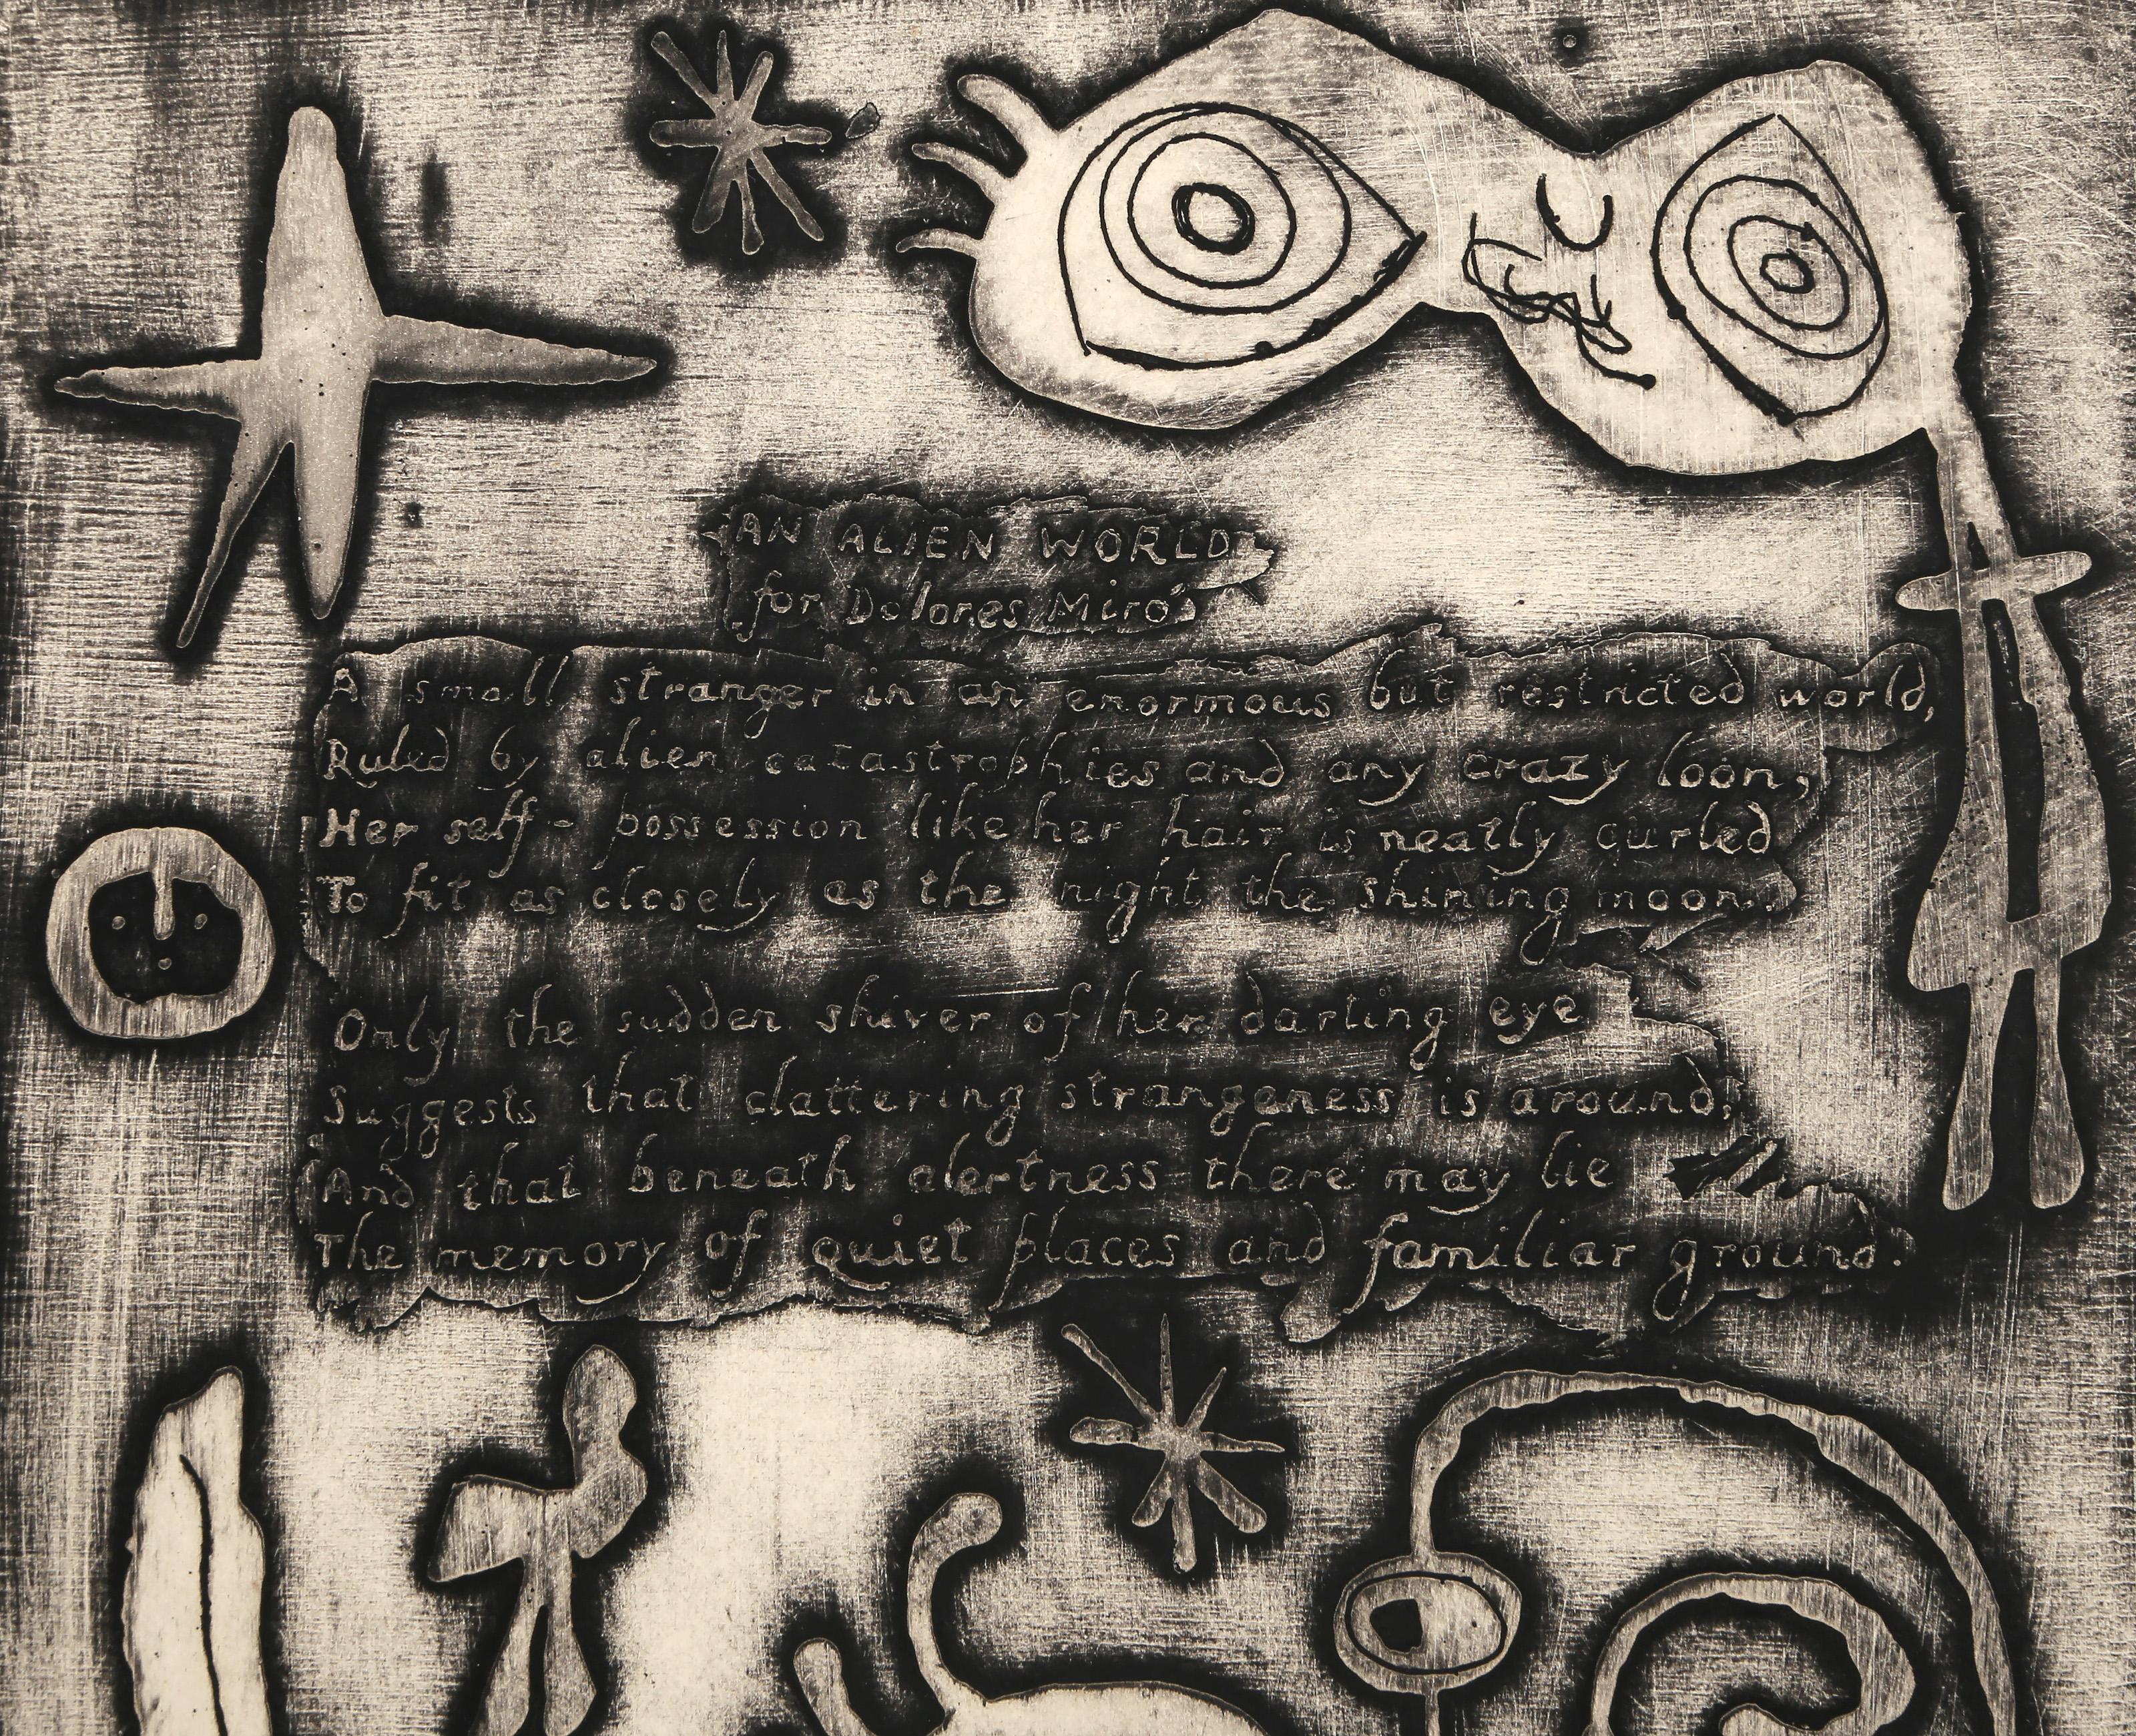 AN ALIEN WORLD
for Dolores Miró
A small stranger in an enormous but restricted world,
Ruled by alien catastrophies and any crazy loon,
Her self-possession like her hair is neatly curled
To fit as closely as the night the shining moon.
Only the sudden shiver of her darting eye
Suggests that clattering strangeness is around;
And that beneath alertness there may lie
The memory of quiet places and familiar ground.